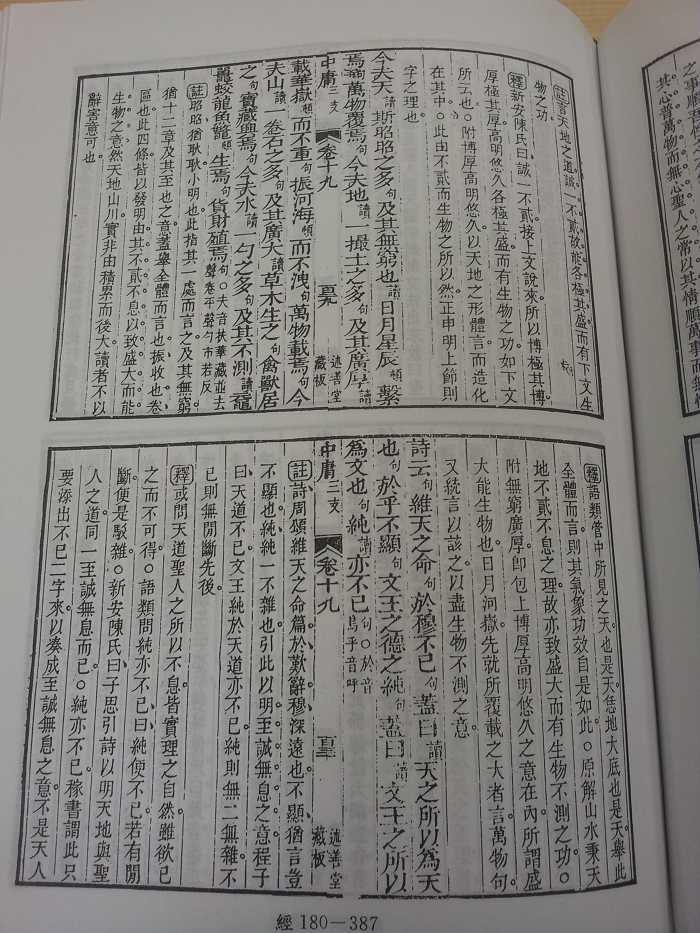 註言天地之道誠一不貳故能各極其盛而有下文生
物之功
釋新安陳氏曰誠一不貳接上文說來所以博極其博
厚極其厚高明悠久各極其盛而有生物之功如下文
所云也○附博厚高明悠久以天地之形體言而造化
在其中○此由不貳而生物之所以然正申明上節則
字之理也
今夫天讀斯昭昭之多句及其無窮也讀日月星辰頓繫
焉句萬物覆焉句今夫地讀一撮土之多句及其廣厚讀
中庸三支 卷十九 述善堂藏板
載華嶽頓而不重句振河海頓而不洩句萬物載焉句今
夫山讀一卷石之多句及其廣大讀草木生之句禽獸居
之句寶藏興焉句今夫水讀一勺之多句及其不測讀黿
鼉蛟龍魚鼈頓生焉句貨財殖焉句○夫音扶華藏並去聲卷平聲勺市若反
註昭昭猶耿耿小明也此指其一處而言之及其無窮
猶十二章及其至也之意蓋舉全體而言也振收也卷
區也此四條皆以發明由其不貳不息以致盛大而能
生物之意然天地山川實非由積累而後大讀者不以
辭害意可也
釋語類管中所見之天也是天恁地大底也是天舉此
全體而言則其氣象功效自是如此○原解山水秉天
地不貳不息之理故亦致盛大而有生物不測之功○
附無窮廣厚卽包上博厚高明悠久之意在內所謂盛
大能生物也日月河嶽先就所覆載之大者言萬物句
又統言以該之以盡生物不測之意
詩云句維天之命句於穆不已句蓋曰讀天之所以為天
也句於乎不顯句文王之德之純句蓋曰讀文王之所以
中庸三支 卷十九 述善堂藏板
為文也句純讀亦不已句○於音烏乎音呼
註詩周頌維天之命篇於歎辭穆深遠也不顯猶言豈
不顯也純純一不雜也引此以明至誠無息之意程子
曰天道不已文王純於天道亦不已純則無二無雜不
已則無閒斷先後
釋或問天道聖人之所以不息皆實理之自然雖欲已
之而不可得○語類問純亦不已曰純便不已若有閒
斷便是駁雜○新安陳氏曰子思引詩以明天地與聖
人之道同一至誠無息而已○純亦不已稼書謂此只
要添出不已二字來以湊成至誠無息之意不是天人
經180－387